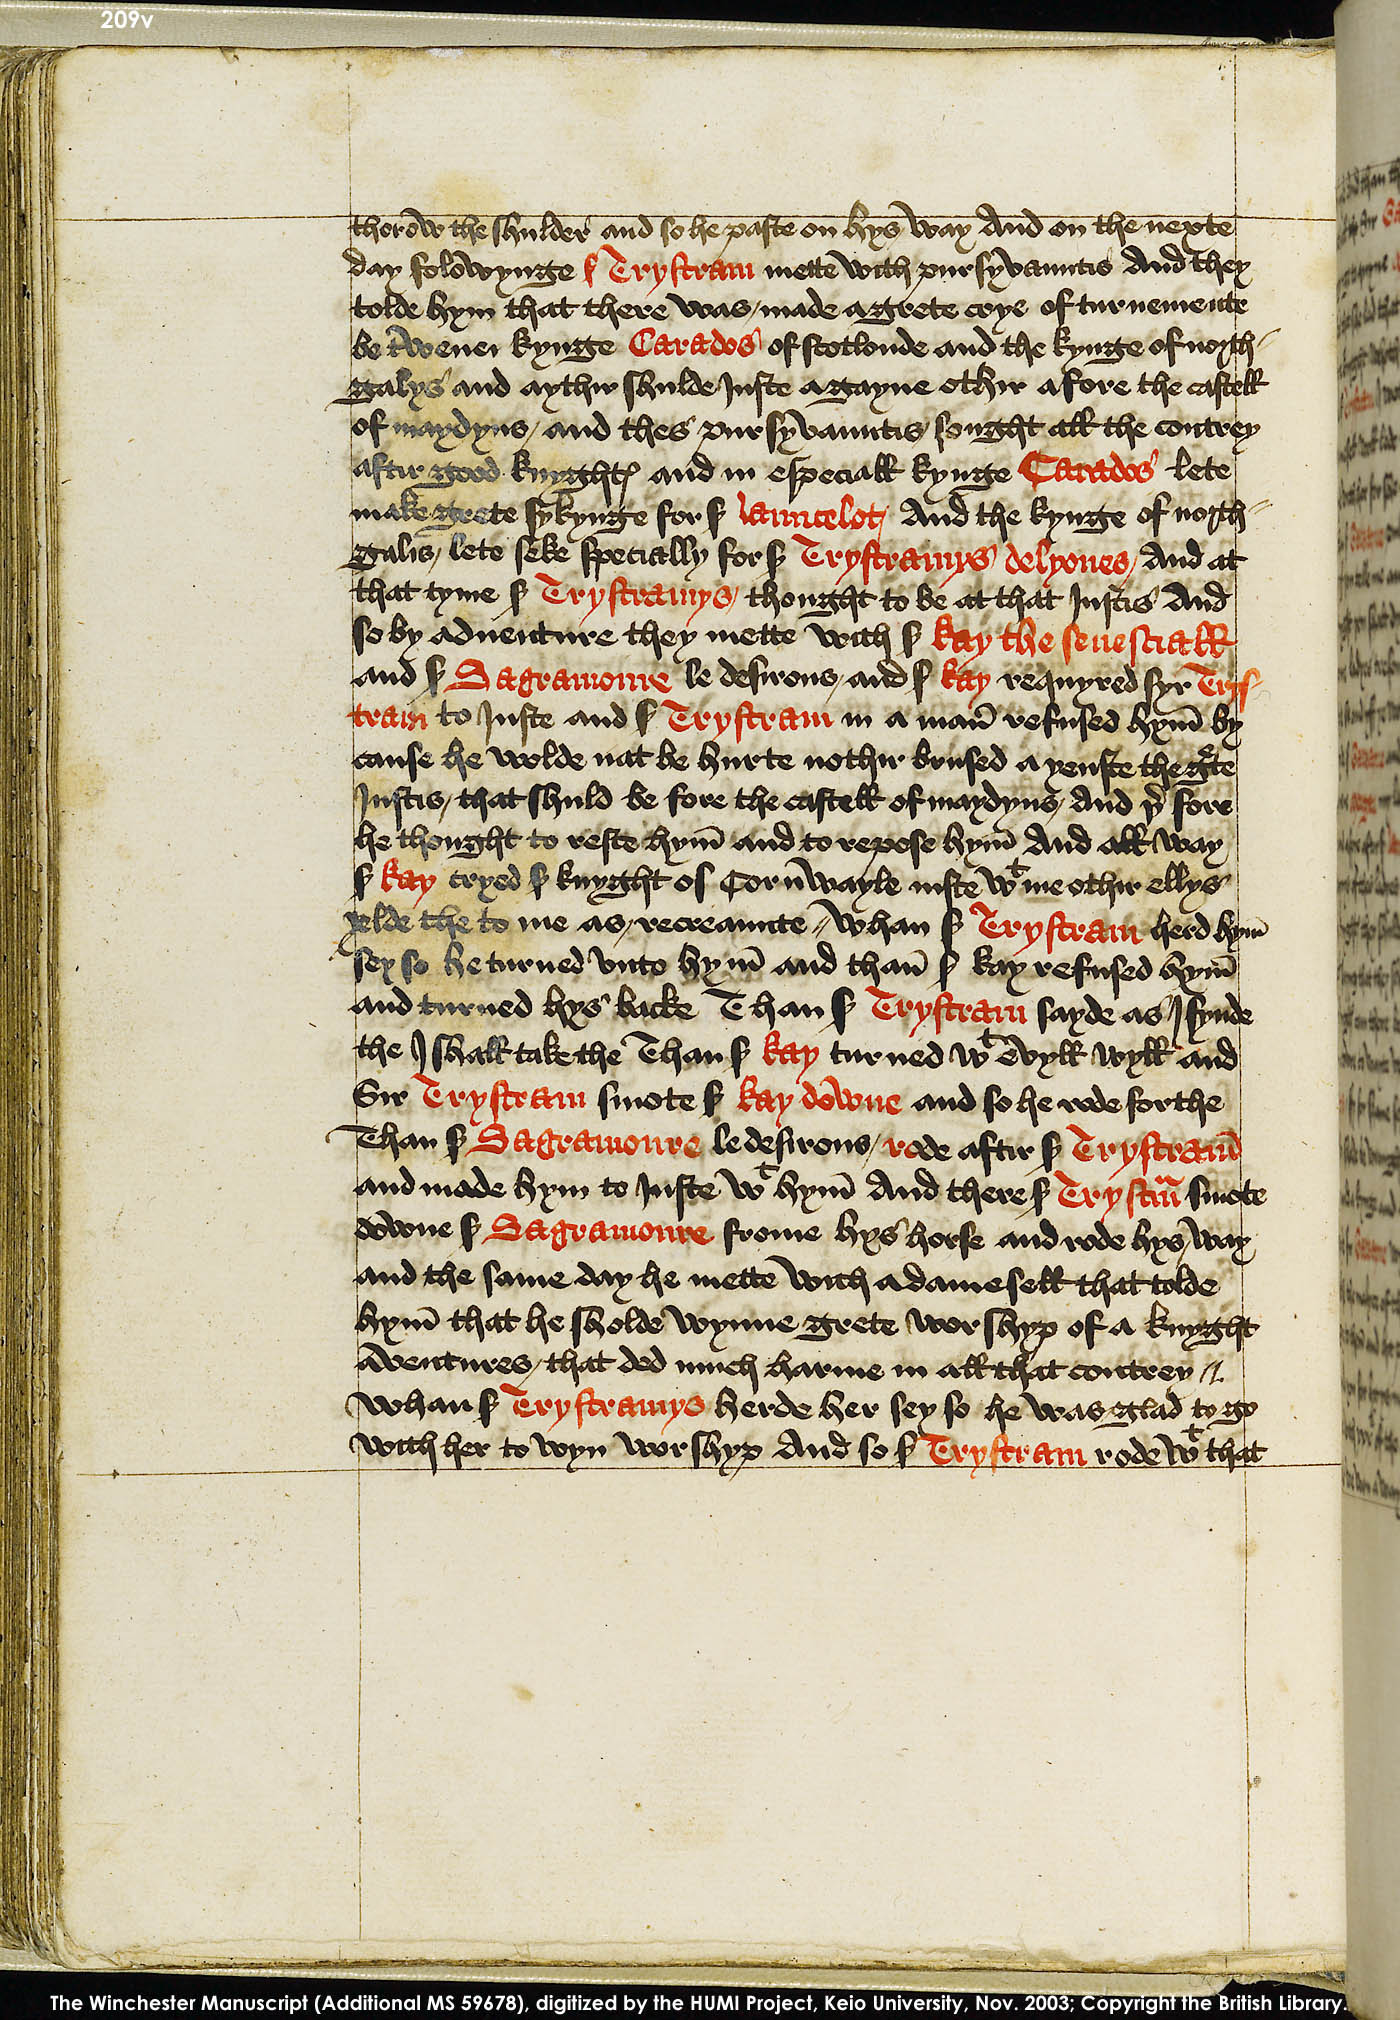 209v
thorow the shulder and so he paste on hys way And on the nexte
day folowynge s Trystram mette with pursyvauntis And they
tolde hym that there was / made a grete crye of turnemente
be twener kynge Carados of scotlonde and the kynge of north-
galys and aythir shulde Juste agayne othir afore the castell
of maydyns / and thes pursyvauntis / sought all the contrey
aftir good knyghtes and in especiall kynge Carados lete
make grete sykynge for s launcelot / And the kynge of north-
galis / lete seke specially for s Trystramys delyones / And at
that tyme s Trystramys / thought to be at that Justis And
so by adventure they mette with s kay the senesciall
and s Sagramoure le desirous / and s kay requyred syr Trys
tram to Juste and s Trystram in a man̄ refused hym̄ by
cause he wolde nat be hurte nothir brused ayenste the grete
Justis / that shuld be fore the castell of maydyns / And þer fore
he thought to reste hym̄ and to repose hym̄ And all way
s kay cryed s knyght of Cornwayle iuste wt me othir ellys
yelde the to me as / recreaunte // whan s Trystram herd hym̄
sey so he turned vnto hym̄ and than̄ s kay refused hym̄
and turned hys backe Than s Trystram sayde as J fynde
the J shall take the Than s kay turned wt evyll wyll and
Sir Trystram smote s kay downe and so he rode forthe
Than s Sagramoure le desirous / rode aftir s Trystram̄
and made hym to Juste wt hym̄ And there s Trystm̄ smote
downe s Sagramoure frome hys horse and rode hys way
and the same day he mette with a damesell that tolde
hym̄ that he sholde wynne grete worshyp of a knyght
aventures / that ded much harme in all that contrey //
whan s Trystramys herde her sey so he was glad to go
with her to wyn worshyp And so s Trystram rode wt that
The Winchester Manuscript (Additional MS 59678), digitized by the HUMI Project, Keio University, Nov. 2003; Copyright the British Library.